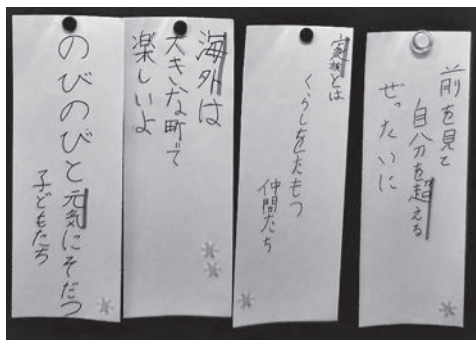 前を見て
自分を超える
ぜったいに
家族とは
くらしをたもつ
仲間たち
海外は
大きいな町で
楽しいよ
のびのびと元気にそだつ
子どもたち